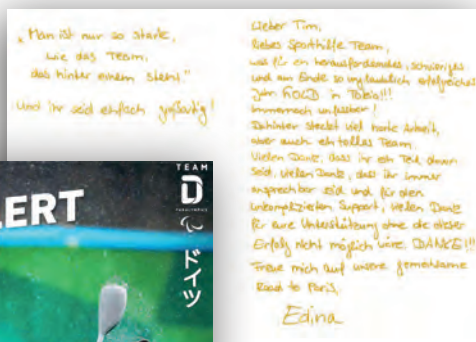 „Man ist nur so stark,
wie das Team,
das hinter einem steht"
Und ihr seid einfach großartig!
Lieber Tim,
liebes Sporthilfe Team,
was für ein herausforderndes, schwieriges
und am Ende so unglaublich erfolgreiches
Jahr. GOLD in Tokio!!!
Immernoch unfassbar!
Dahinter steckt viel harte Arbeit,
aber auch ein tolles Team.
Vielen Dank, dass ihr ein Teil davon
seid. Vielen Dank, daß ihr immer
ansprechbar seid und für den
unkomplizierten Support, Vielen Dank
für eure Unterstützung ohne die dieser
Erfolg nicht möglich wäre. DANKE!!!
Freue mich auf unsere gemeinsame
Road to Paris.
Edina
TEAM
D
PARALYMPICS
ドイツ
LERT